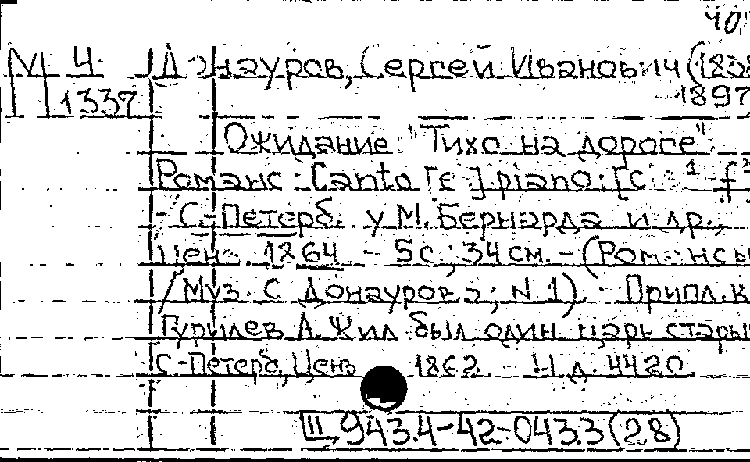 40
М 4 Донауров, Сергей Иванович (1838
1337 -1897
Ожидание "Тихо на дороге".
Романс: Canto [e] piano: [c 1 f2
- С.-Петерб. у М. Бернарда и др.,
ценз. 1864 - 5с.; 34 см. - (Романсы
/Муз. С Донаурова; N 1) - Припл. к:
Гурилев А. Жил был один царь стары
С-Петерб, Ценз 1862 Н.д. 4420
III 943.4-42-043.3(28)